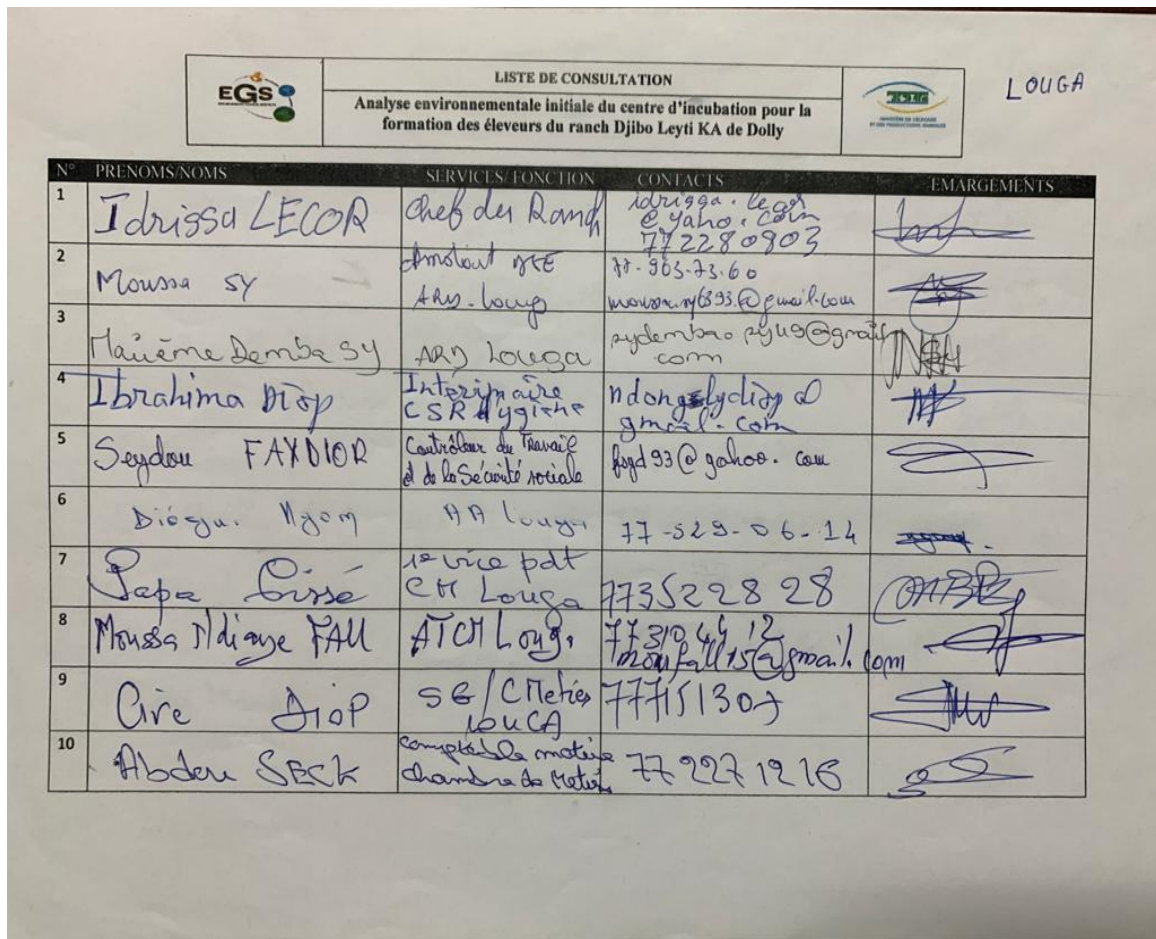 EGS
LISTE DE CONSULTATION
Analyse environnementale initiale du centre d'incubation pour la
formation des éleveurs du ranch Djibo Leyti KA de Dolly
LOUGA
N° PRENOMS/NOMS SERVICES/FONCTION CONTACTS EMARGEMENTS
1 Idrissa LECOR Chef du Ranch
@yaho.com
772280903
2 Moussa SY
77-963-73-60
ARD-Louga
3 Demba SY ARD Louga
com
4 Ibrahima Diop Interimaire
CSR Hygiène
gmail.com
5 Seydou FAXDIOR Contrôleur du Travail
et de la Sécurité sociale
fsgd93@yahoo.com
6 AA Louga 77-529-06-14
7 Papa Cissé 1e vice pdt
CM Louga 7735228 28
8 Moussa Ndiaye FALL ATCM Louga 77 310 44 12
moufall15@gmail.com
9 Cire DIOP SG/CMetiés
LOUGA
10 Abdou SECK comptable matière
chambre de Metier 77 227 12 16